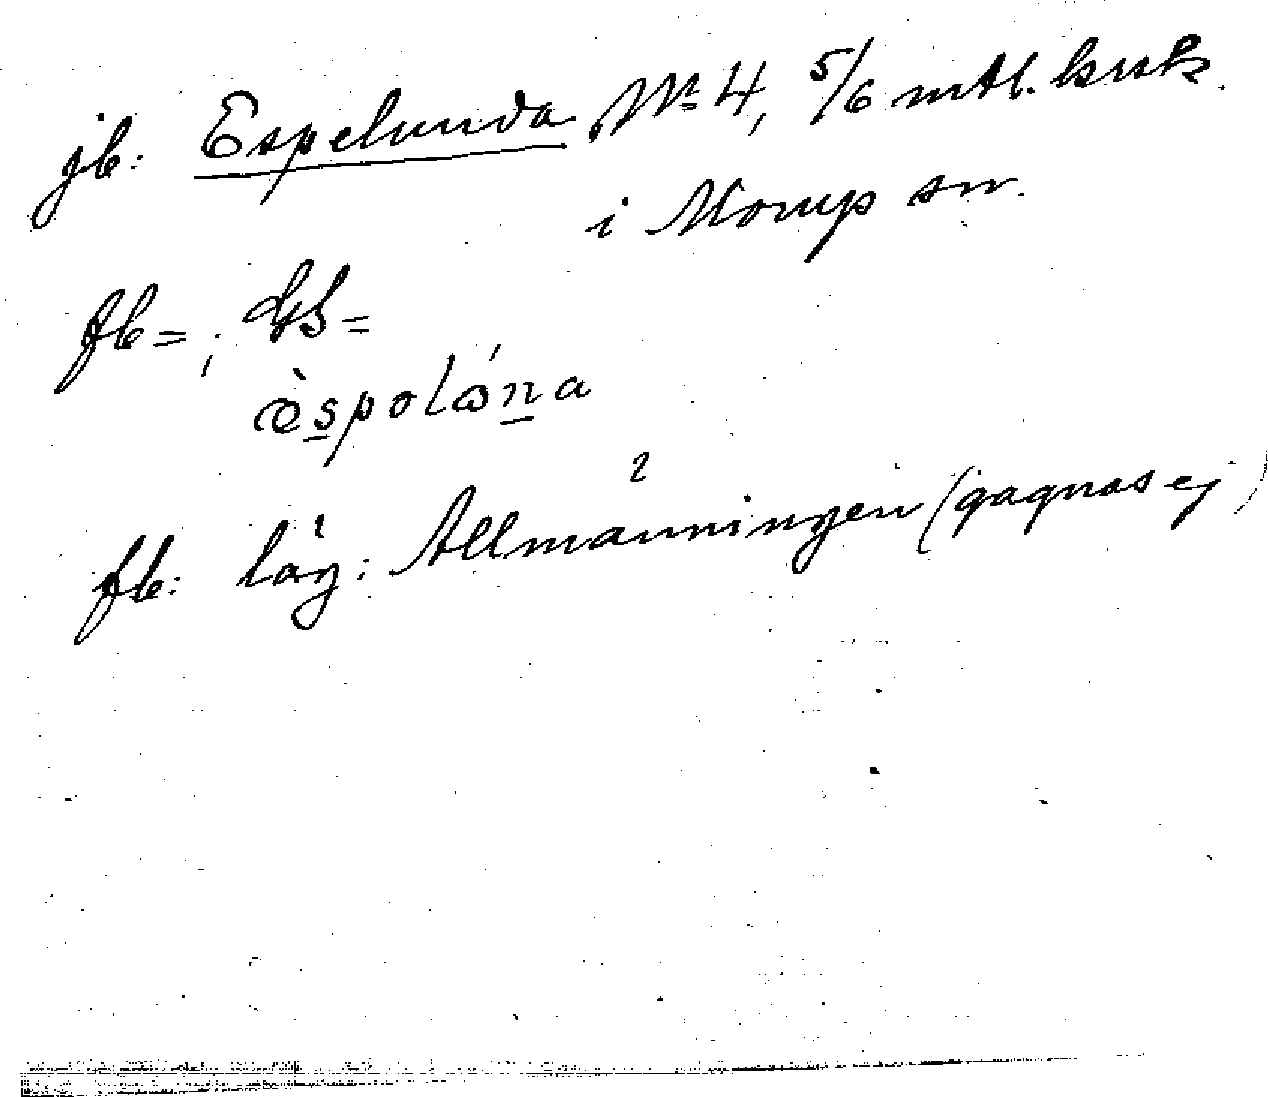 jb: Espelunda No 4, 5/6 mtl. krsk.
i Morup sn.
fb = ; GS =
èspolána
fb: låg: Allmänningen (gagnas ej)